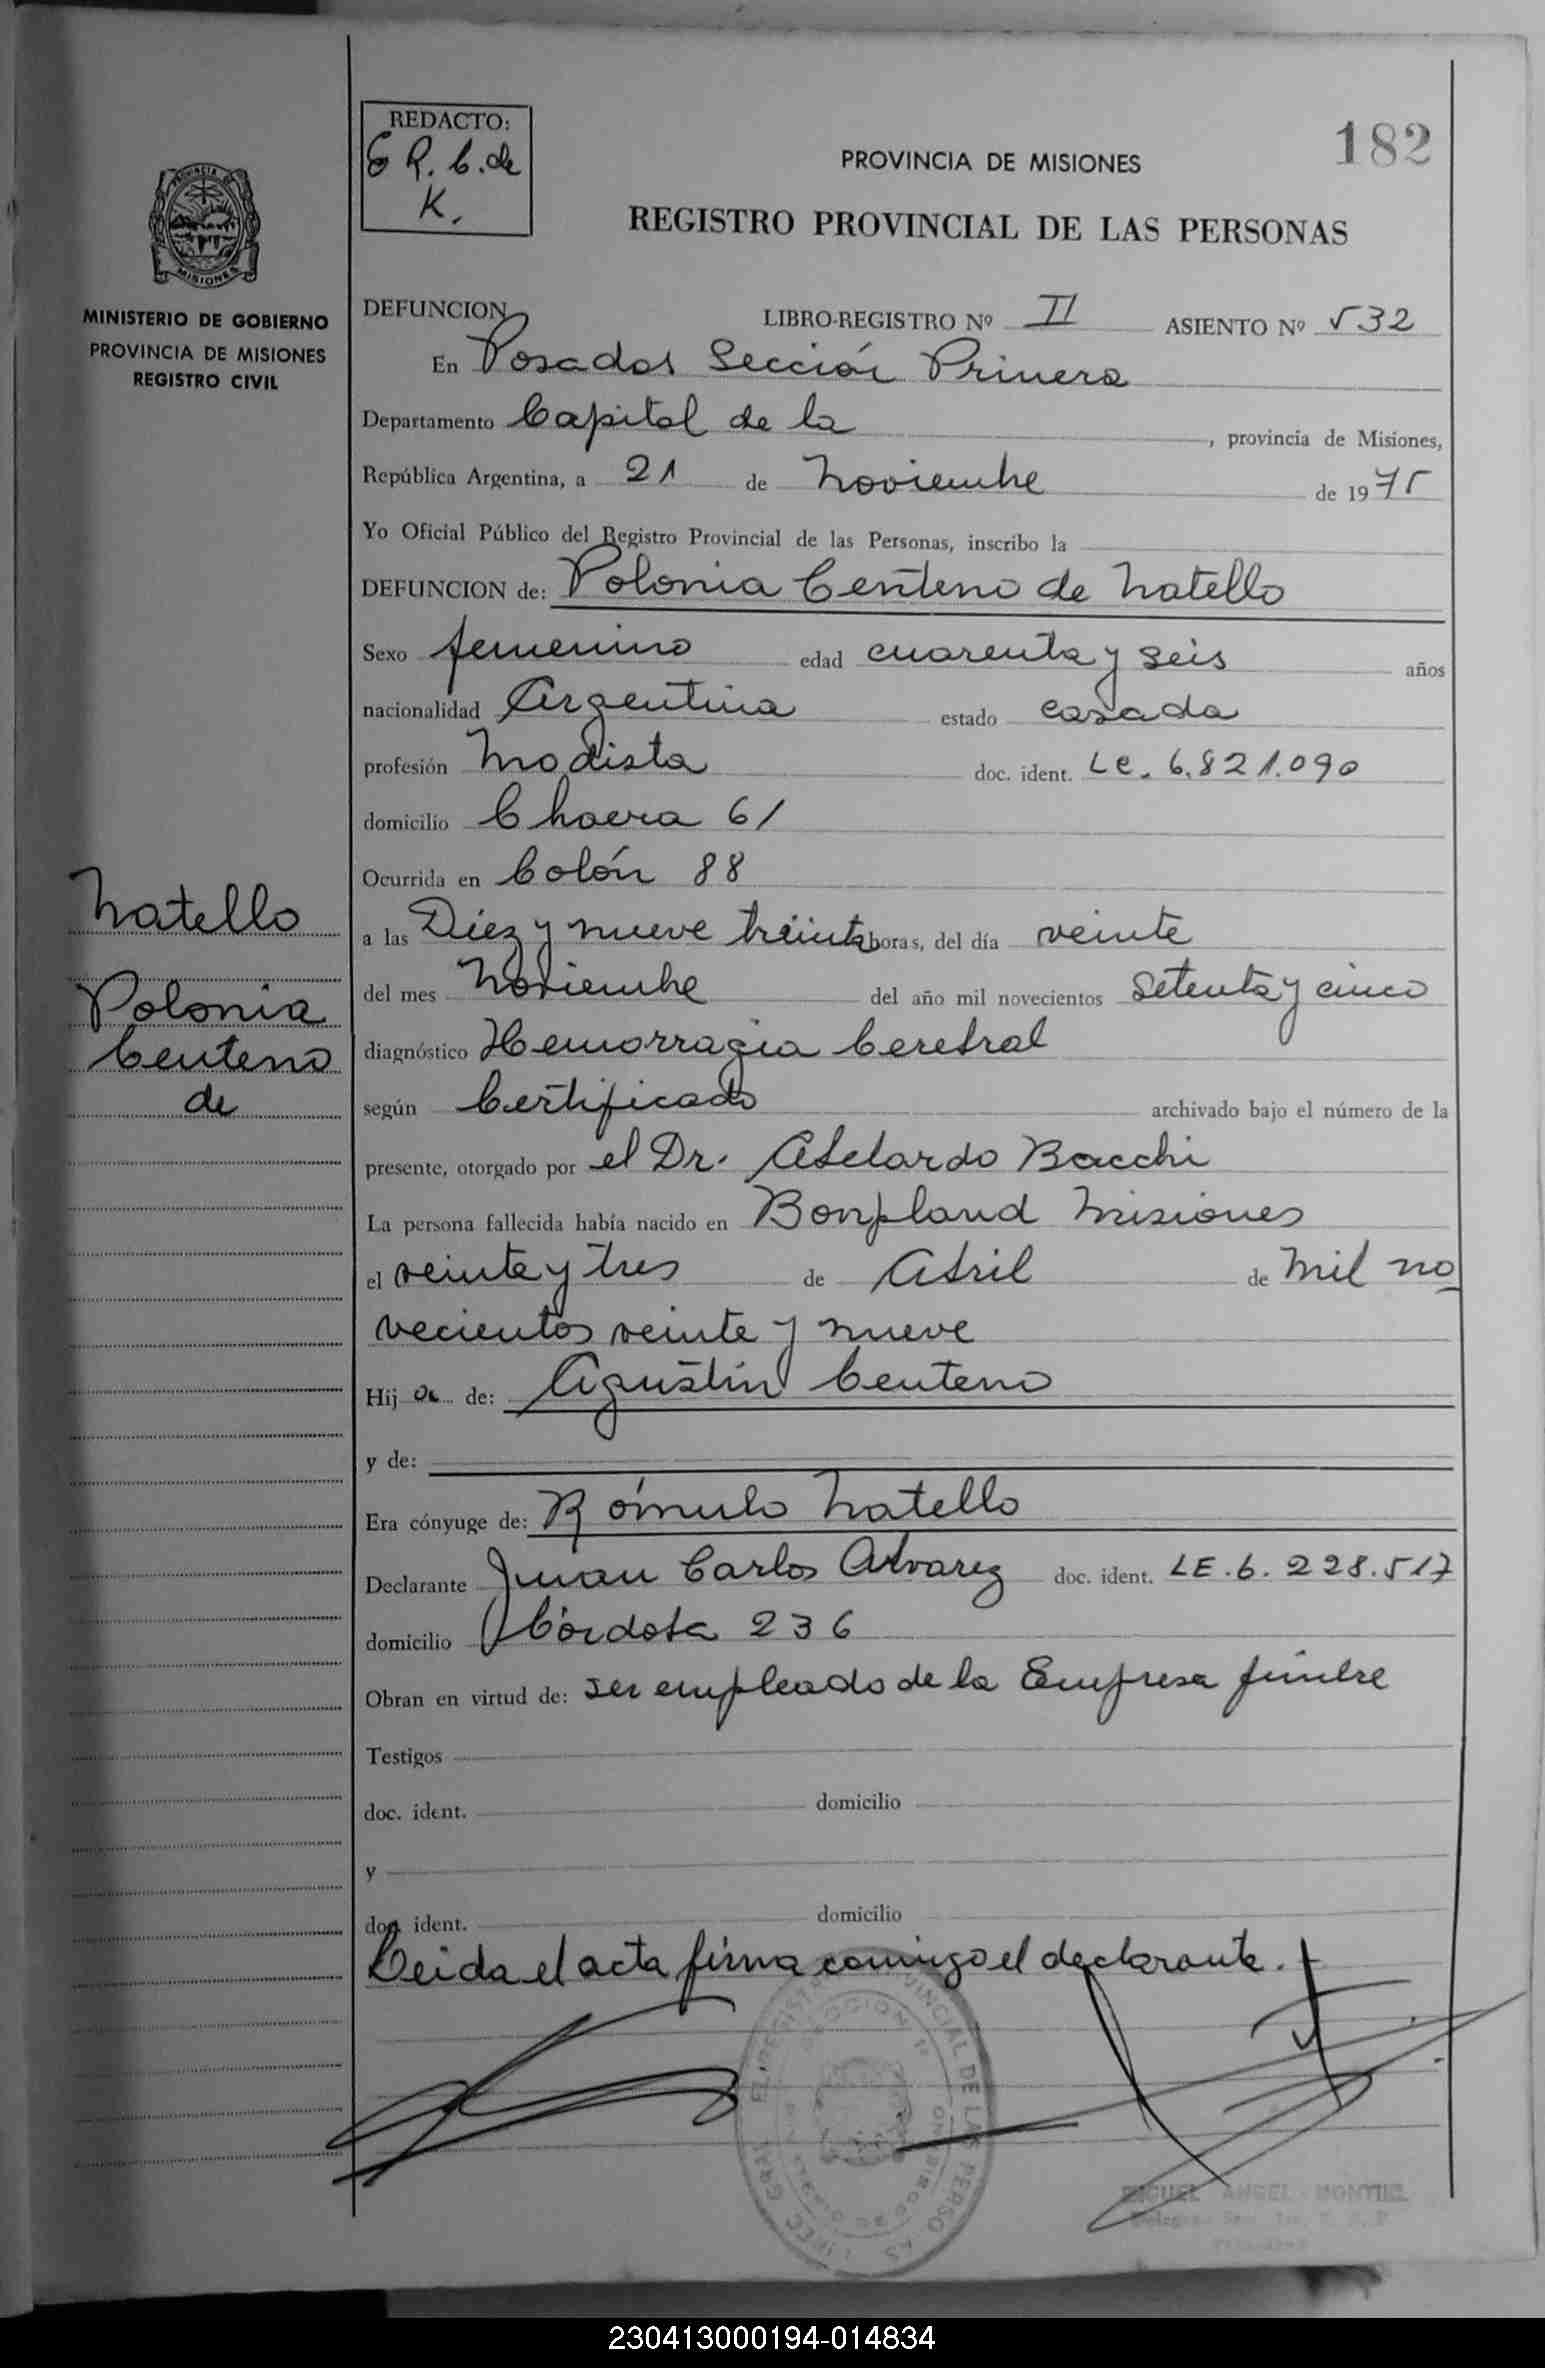 REDACTO:
E R. C. de
K.
182
PROVINCIA DE MISIONES
REGISTRO PROVINCIAL DE LAS PERSONAS
MISIONES
MINISTERIO DE GOBIERNO
PROVINCIA DE MISIONES
REGISTRO CIVIL
DEFUNCION
LIBRO-REGISTRO Nº II ASIENTO Nº 532
En Posadas Sección Primera
Departamento Capital de la, provincia de Misiones,
República Argentina, a 21 de Noviembre de 1975
Yo Oficial Público del Registro Provincial de las Personas, inscribo la
DEFUNCION de: Polonia Centeno de Natello
Sexo femenino edad cuarenta y seis años
nacionalidad Argentina estado casada
profesión Modista doc. ident. LC. 6.821.090
domicilio Chacra 61
Ocurrida en Colón 88
a las Diez y nueve treinta horas, del día veinte
del mes Noviembre del año mil novecientos setenta y cinco
diagnóstico Hemorragia Cerebral
según Certificado archivado bajo el número de la
presente, otorgado por el Dr. Abelardo Bacchi
La persona fallecida había nacido en Bonpland Misiones
el veinte y tres de Abril de Mil no
vecientos veinte y nueve
Hija de: Agustín Centeno
y de:
Era cónyuge de: Rómulo Natello
Declarante Juan Carlos Alvarez doc. ident. LE. 6. 228.517
domicilio Córdoba 236
Obran en virtud de: ser empleado de la Empresa fúnebre
Testigos
doc. ident. domicilio
y
doc. ident. domicilio
Leida el acta firma conmigo el declarante.
Natello
Polonia
Centeno
de
MIGUEL ANGEL MONTIEL
230413000194-014834